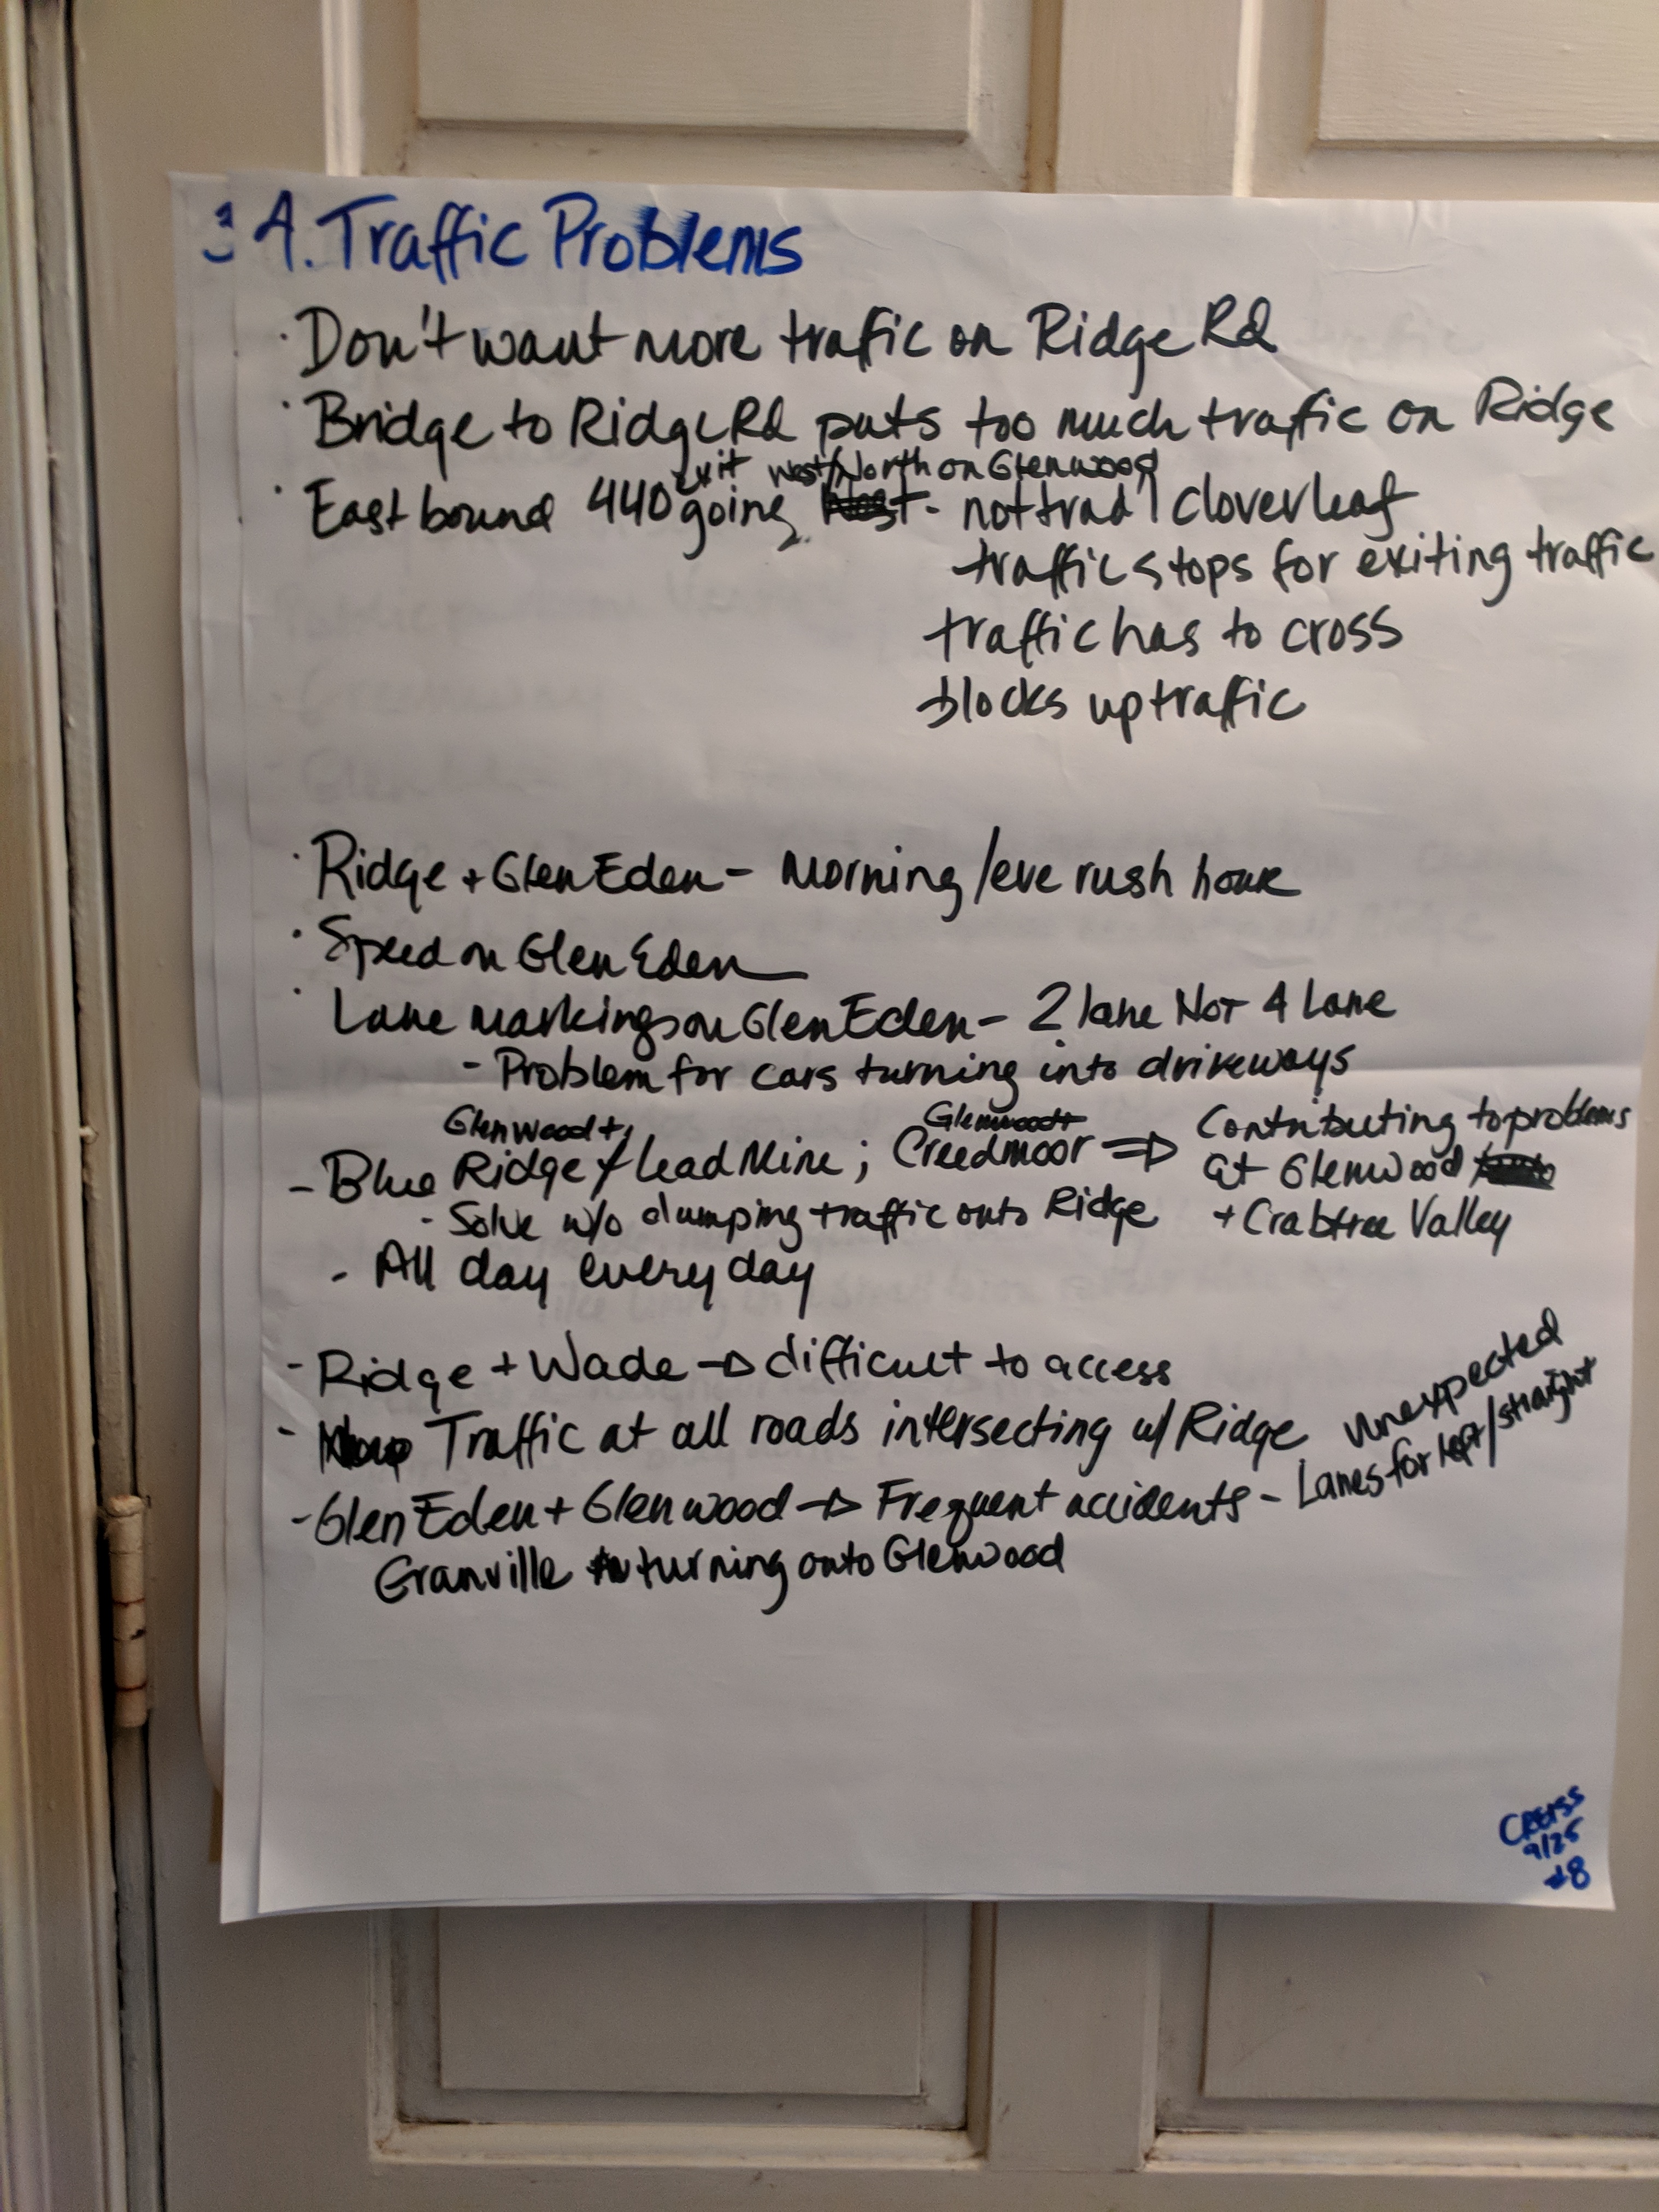 3 A. Traffic Problems
· Don't want more traffic on Ridge Rd
· Bridge to Ridge Rd puts too much traffic on Ridge
exit West/North on Glenwood
· East bound 440 going - not trad'l cloverleaf
traffic stops for exiting traffic
traffic has to cross
blocks up traffic
· Ridge + Glen Eden - Morning/eve rush hour
· Speed on Glen Eden
· Lane markings on Glen Eden - 2 lane NOT 4 Lane
- Problem for cars turning into driveways
Glenwood + Glenwood + Contributing to problems
- Blue Ridge / Lead Mine ; Creedmoor => at Glenwood
- Solve w/o dumping traffic onto Ridge + Crabtree Valley
- All day every day
- Ridge + Wade -> difficult to access
- Traffic at all roads intersecting w/ Ridge unexpected
- Glen Eden + Glenwood -> Frequent accidents - Lanes for left/straight
Granville turning onto Glenwood
9/25
#8